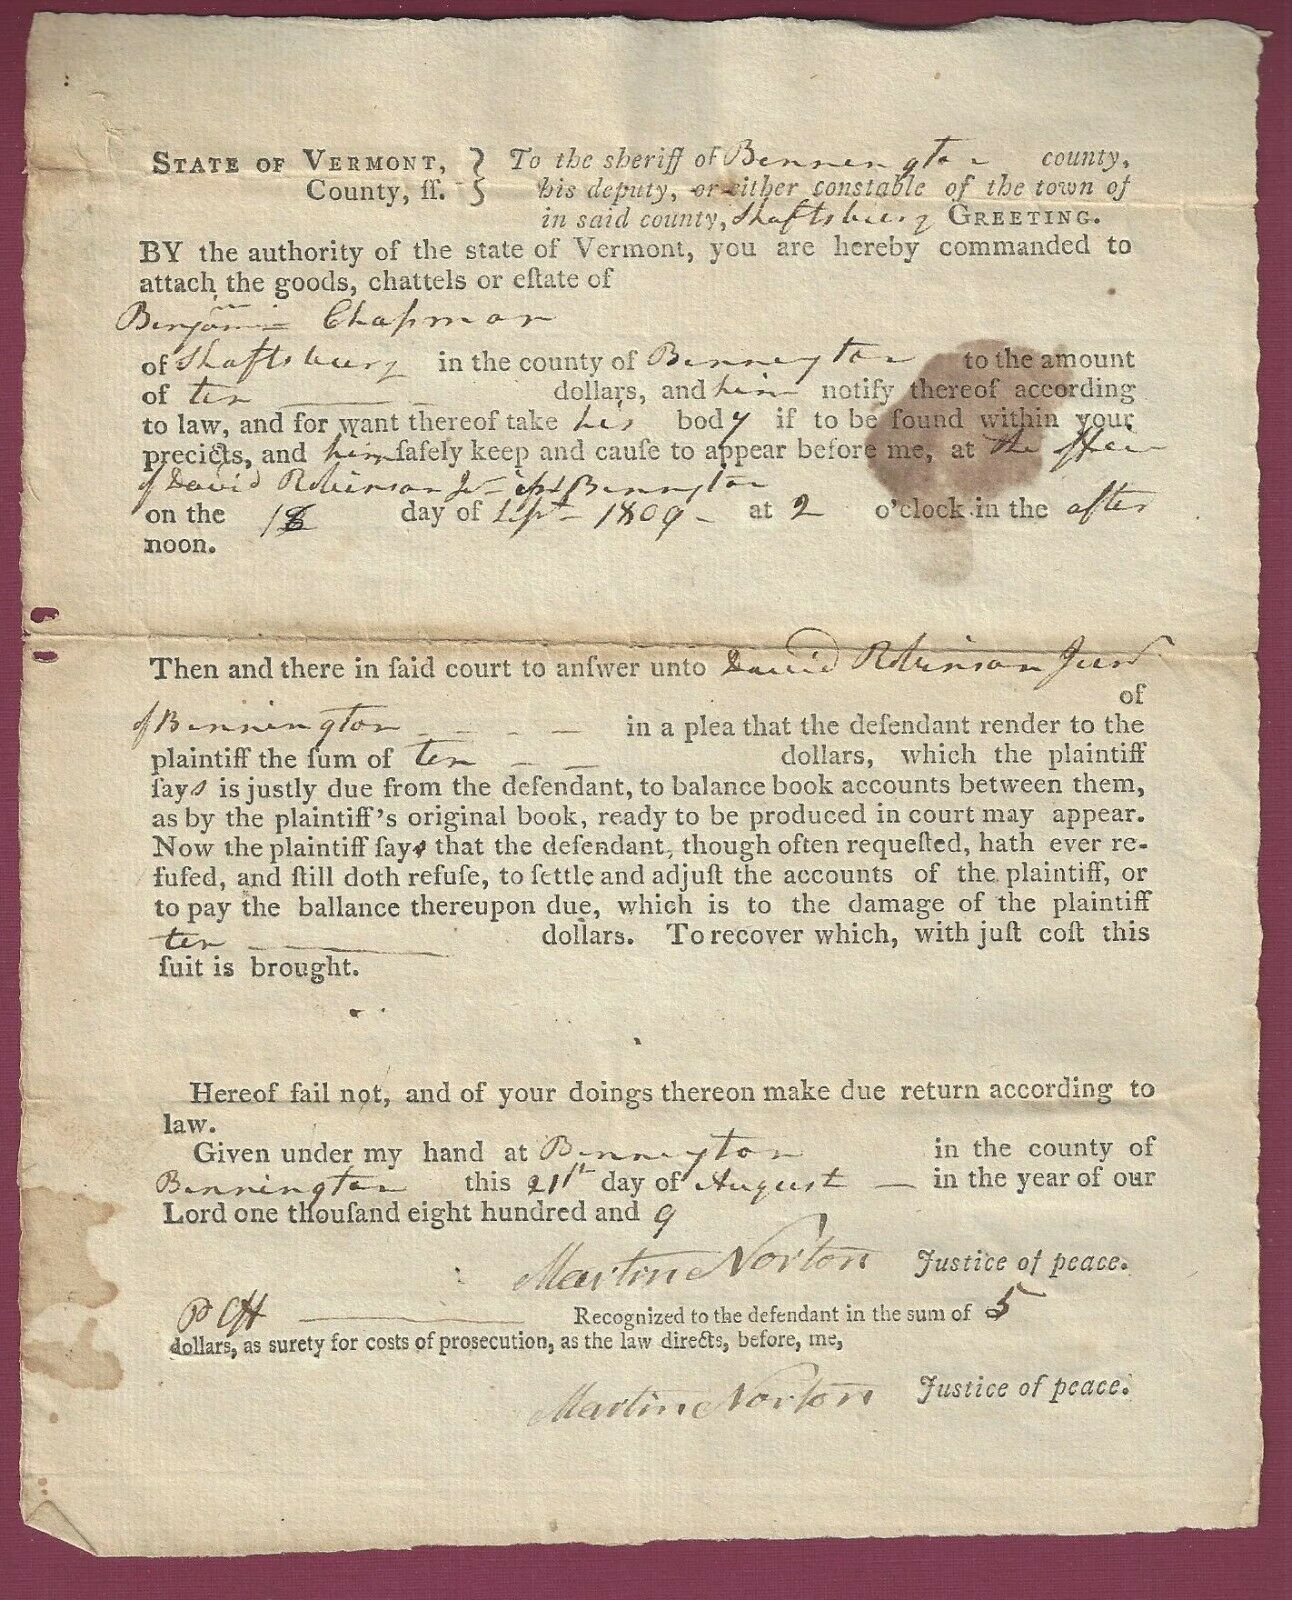 STATE OF VERMONT, } To the sheriff of Bennington county,
County, ſſ. } his deputy, or either constable of the town of
in said county, Shaftsbury GREETING.
BY the authority of the state of Vermont, you are hereby commanded to
attach the goods, chattels or eſtate of
Benjamin Chapman
of Shaftsbury in the county of Bennington to the amount
of ten dollars, and him notify thereof according
to law, and for want thereof take his body if to be found within your
precicts, and him ſafely keep and cauſe to appear before me, at the office
of David Robinson Jr in sd Bennington
on the 18 day of Sept 1809 - at 2 o'clock in the after
noon.
Then and there in ſaid court to anſwer unto David Robinson Junr
of
of Bennington in a plea that the defendant render to the
plaintiff the ſum of ten dollars, which the plaintiff
ſays is juſtly due from the defendant, to balance book accounts between them,
as by the plaintiff's original book, ready to be produced in court may appear.
Now the plaintiff ſays that the defendant, though often requeſted, hath ever re-
fuſed, and ſtill doth refuſe, to ſettle and adjuſt the accounts of the plaintiff, or
to pay the ballance thereupon due, which is to the damage of the plaintiff
ten dollars. To recover which, with juſt coſt this
ſuit is brought.
Hereof fail not, and of your doings thereon make due return according to
law.
Given under my hand at Bennington in the county of
Bennington this 21st day of August — in the year of our
Lord one thouſand eight hundred and 9
Martin Norton Justice of peace.
Recognized to the defendant in the sum of 5
dollars, as surety for costs of prosecution, as the law directs, before, me,
Martin Norton Justice of peace.